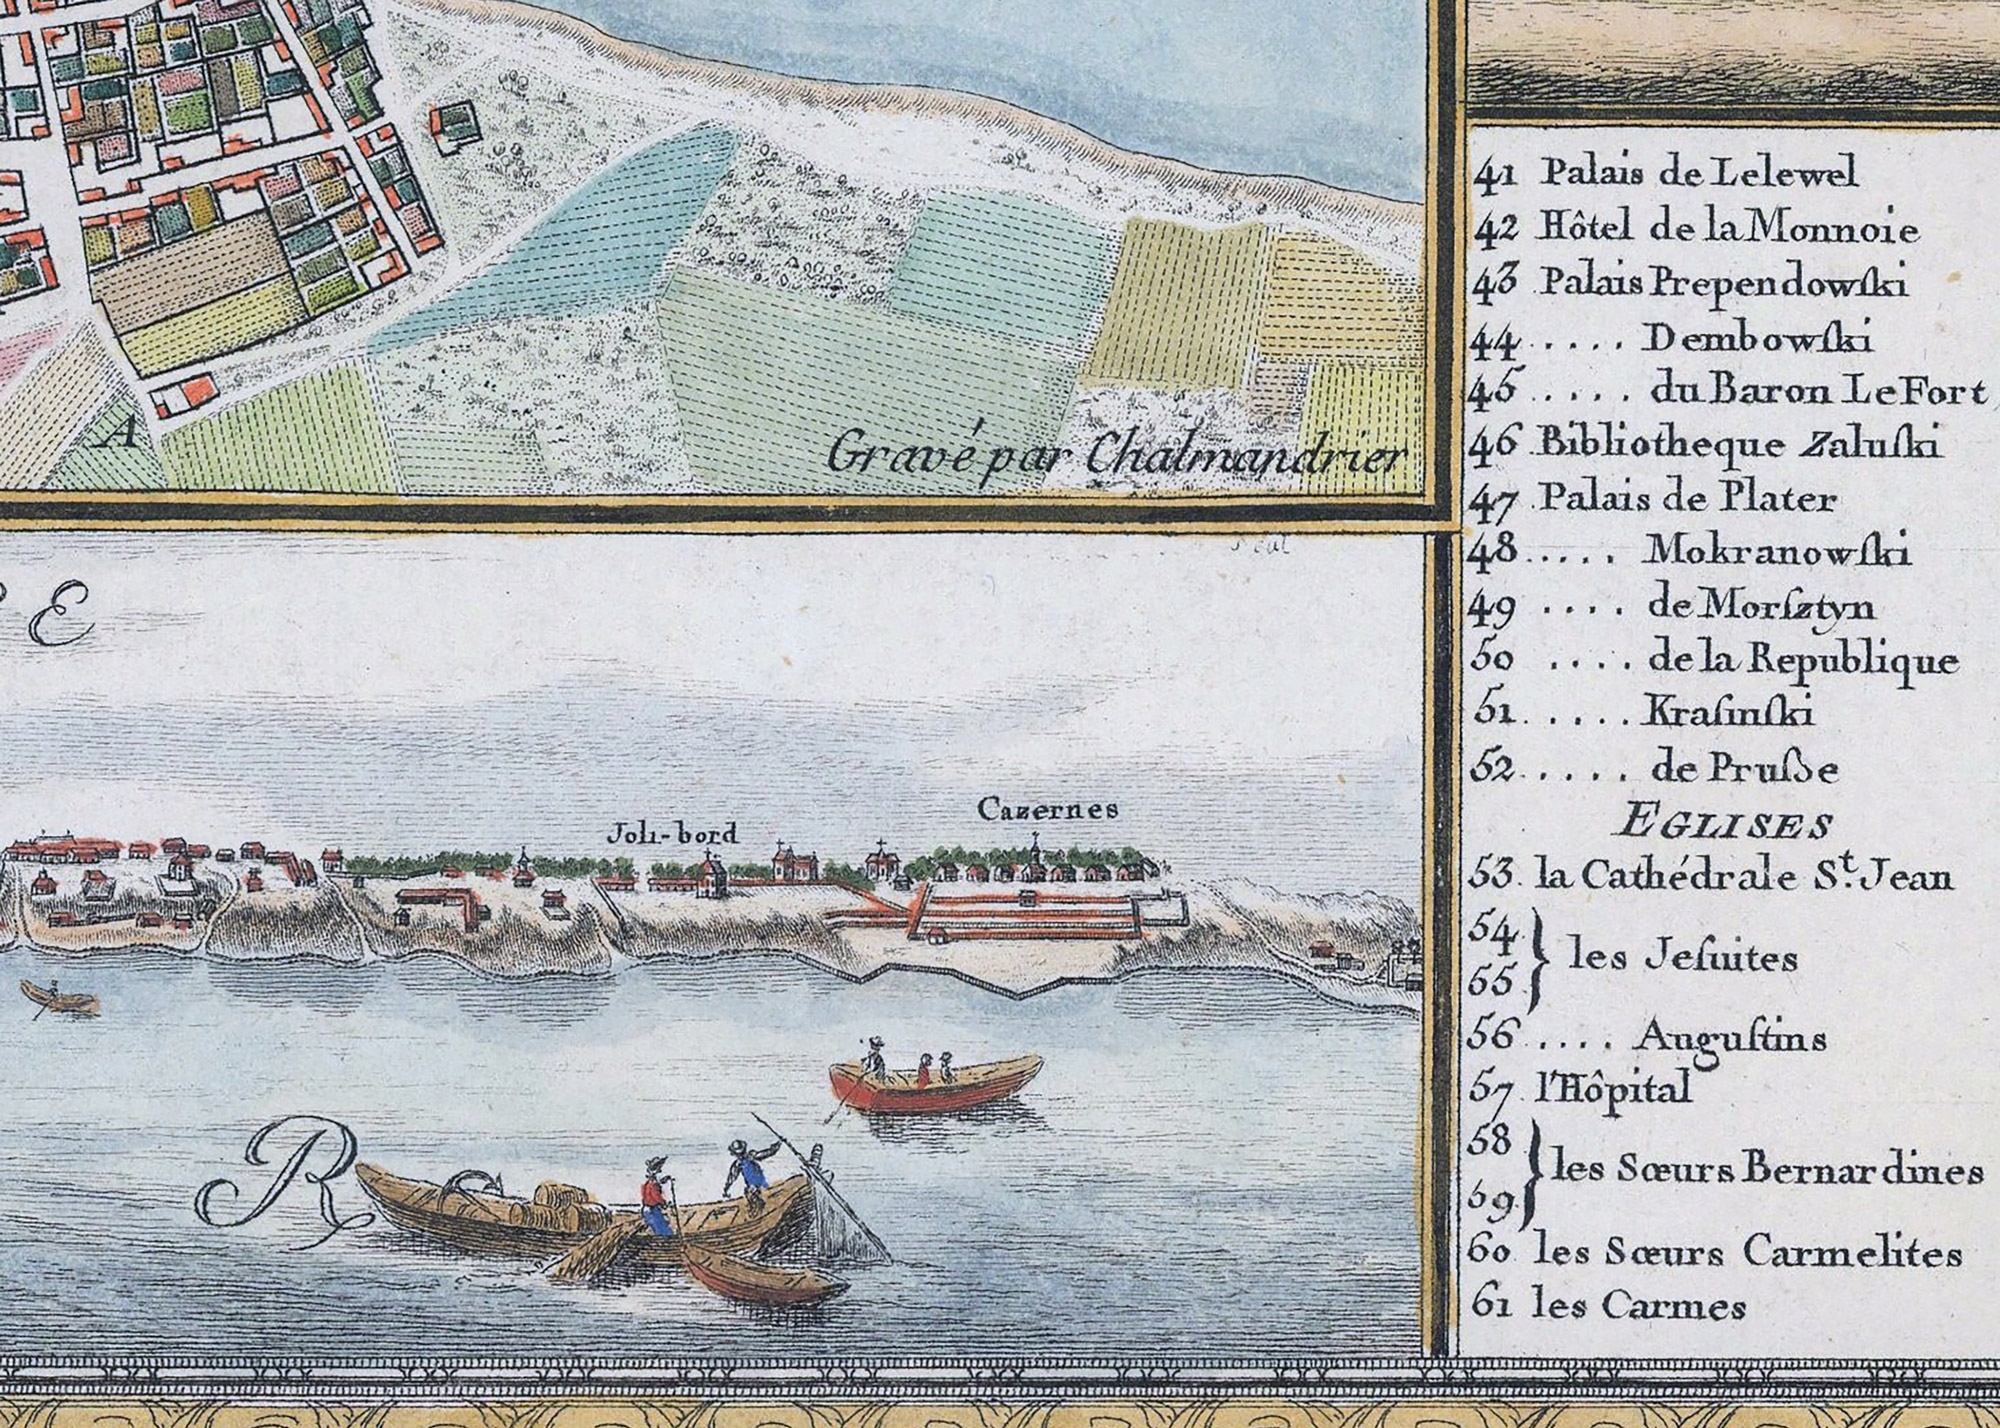 A
Gravé par Chalmandrier
E
Joli-bord
Cazernes
R
41 Palais de Lelewel
42 Hôtel de la Monnoie
43 Palais Prependowſki
44 .... Dembowſki
45 ..... du Baron Le Fort
46 Bibliotheque Zaluſki
47 Palais de Plater
48 .... Mokranowſki
49 .... de Morſztyn
50 .... de la Republique
51 ..... Kraſinſki
52 ..... de Pruſse
EGLISES
53. la Cathédrale St. Jean
54
55 } les Jeſuites
56 .... Auguſtins
57 l'Hôpital
58
59 } les Sœurs Bernardines
60 les Sœurs Carmelites
61 les Carmes